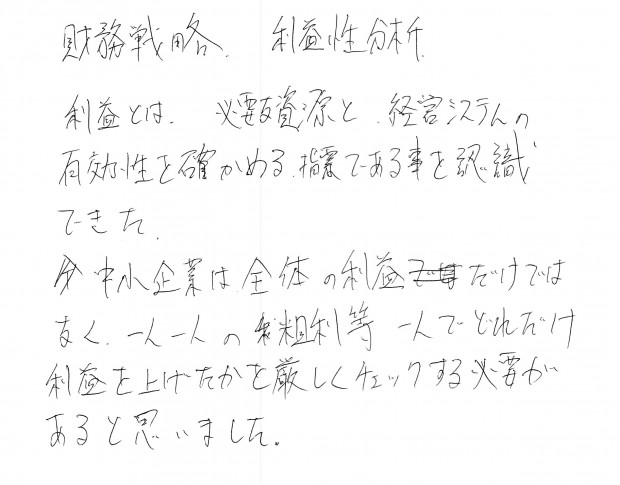 財務戦略、 利益性分析
利益とは、必要な資源と、経営システムの
有効性を確かめる指標である事を認識
できた。
中小企業は全体の利益だけでは
なく、一人一人の粗利等 一人でどれだけ
利益を上げたかを厳しくチェックする必要が
あると思いました。